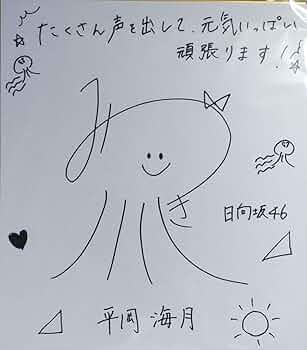 たくさん声を出して、元気いっぱい
頑張ります！！
みつき
日向坂46
平岡 海月